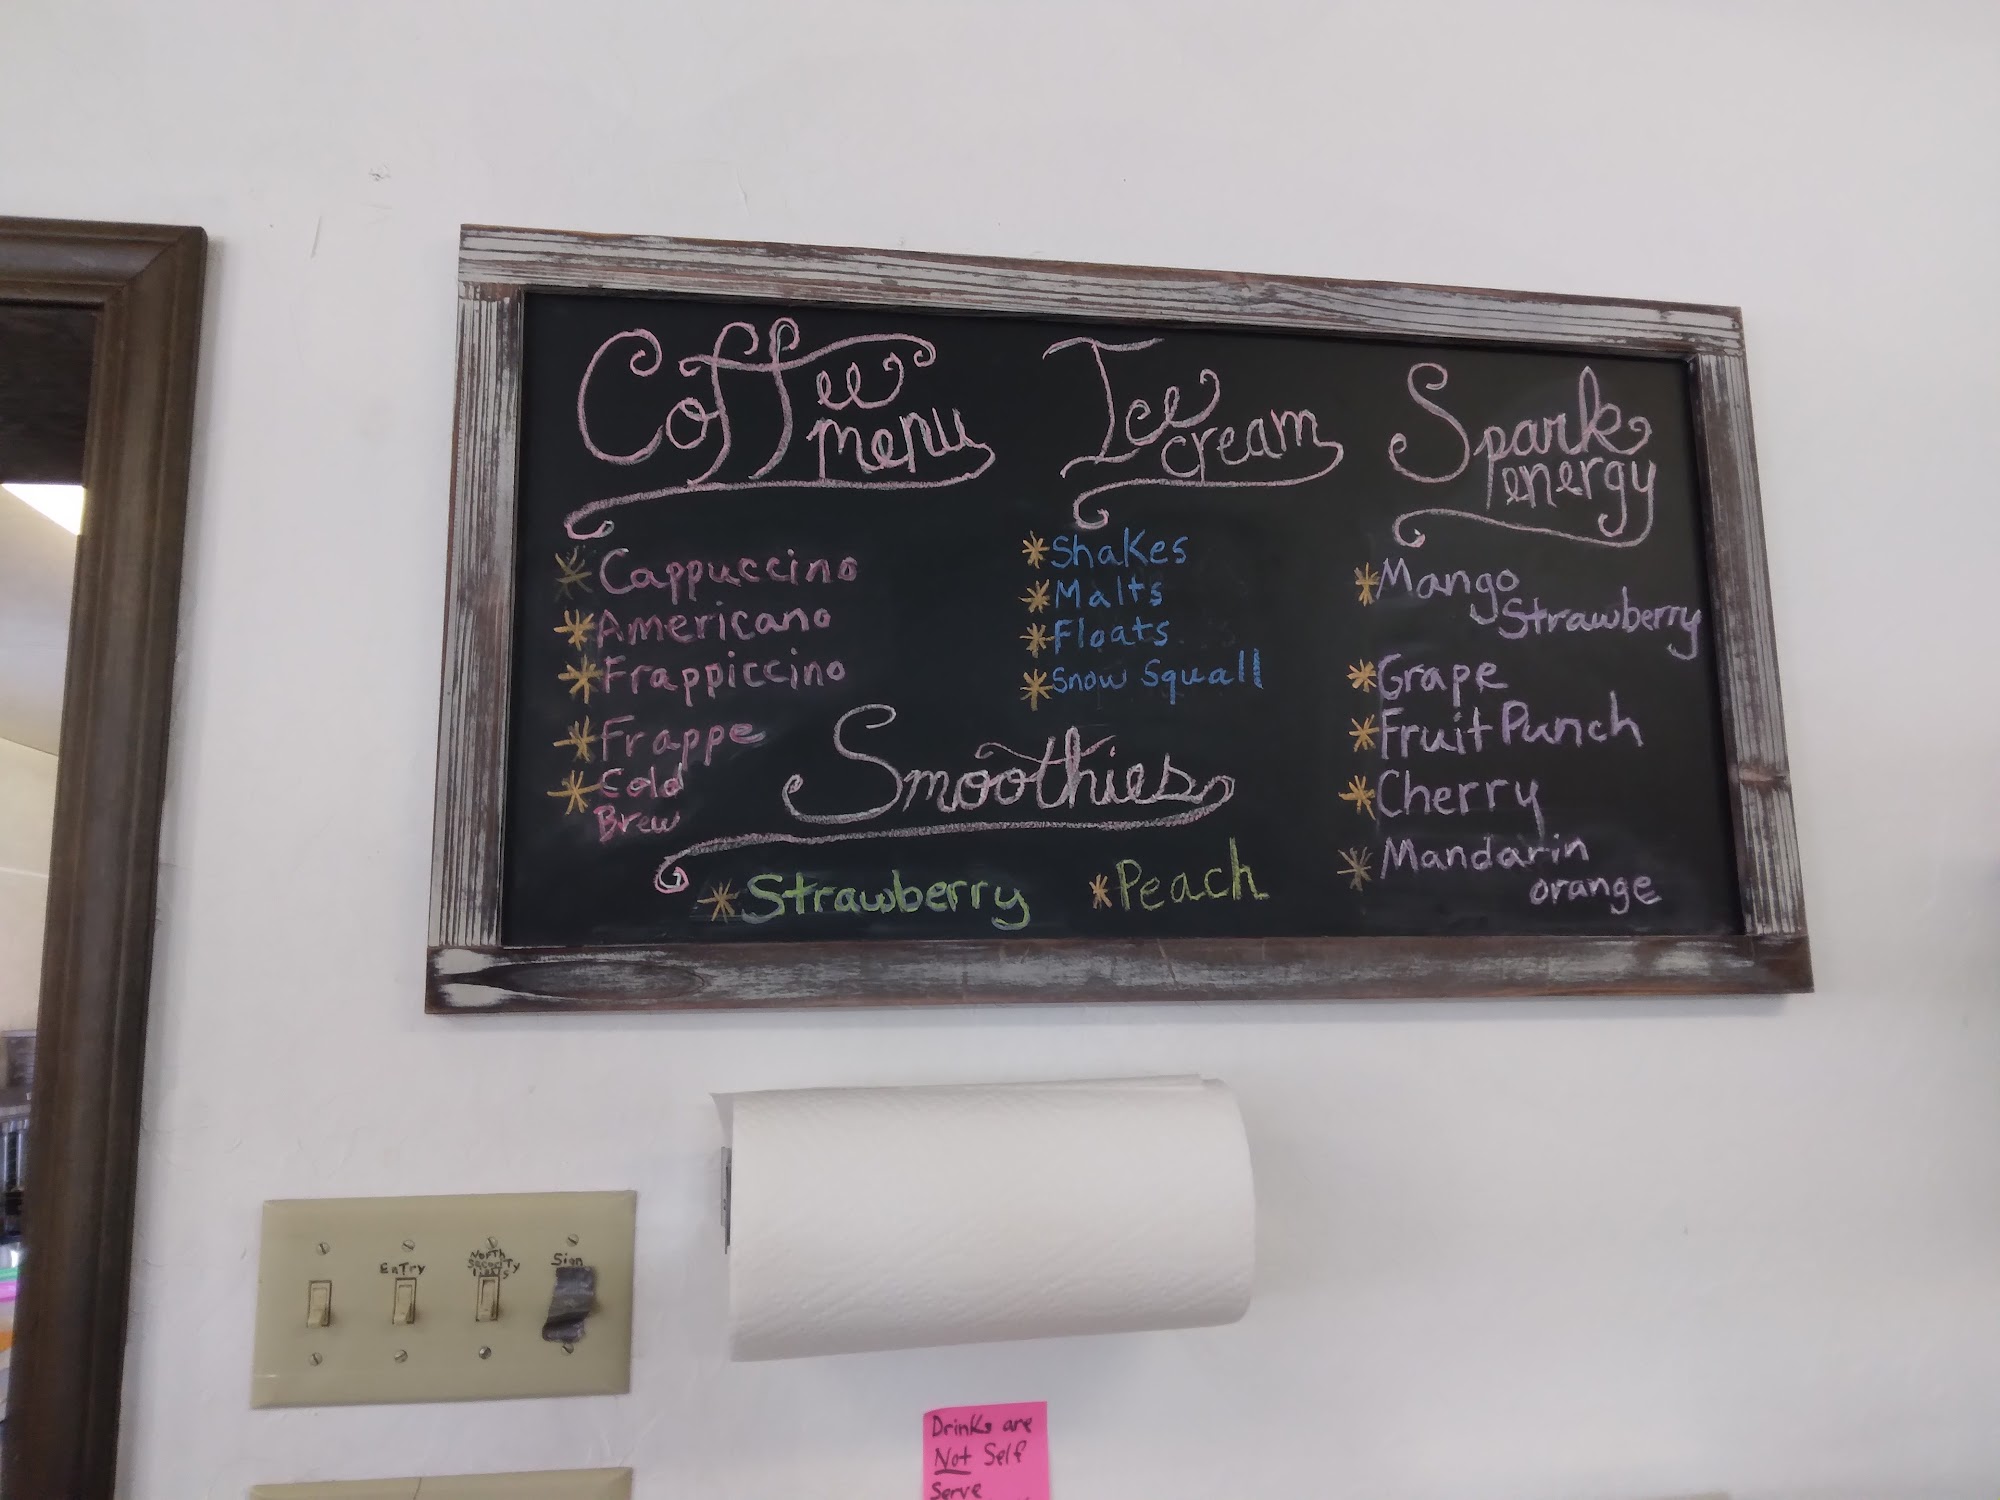 Coffee
menu
Cappuccino
Americano
Frappiccino
Frappe
Cold
Brew
Ice
cream
Shakes
Malts
Floats
Snow Squall
Smoothies
Strawberry
Peach
Spark
energy
Mango
Strawberry
Grape
Fruit Punch
Cherry
Mandarin
orange
EnTry
North
Sign
Drinks are
Not Self
Serve